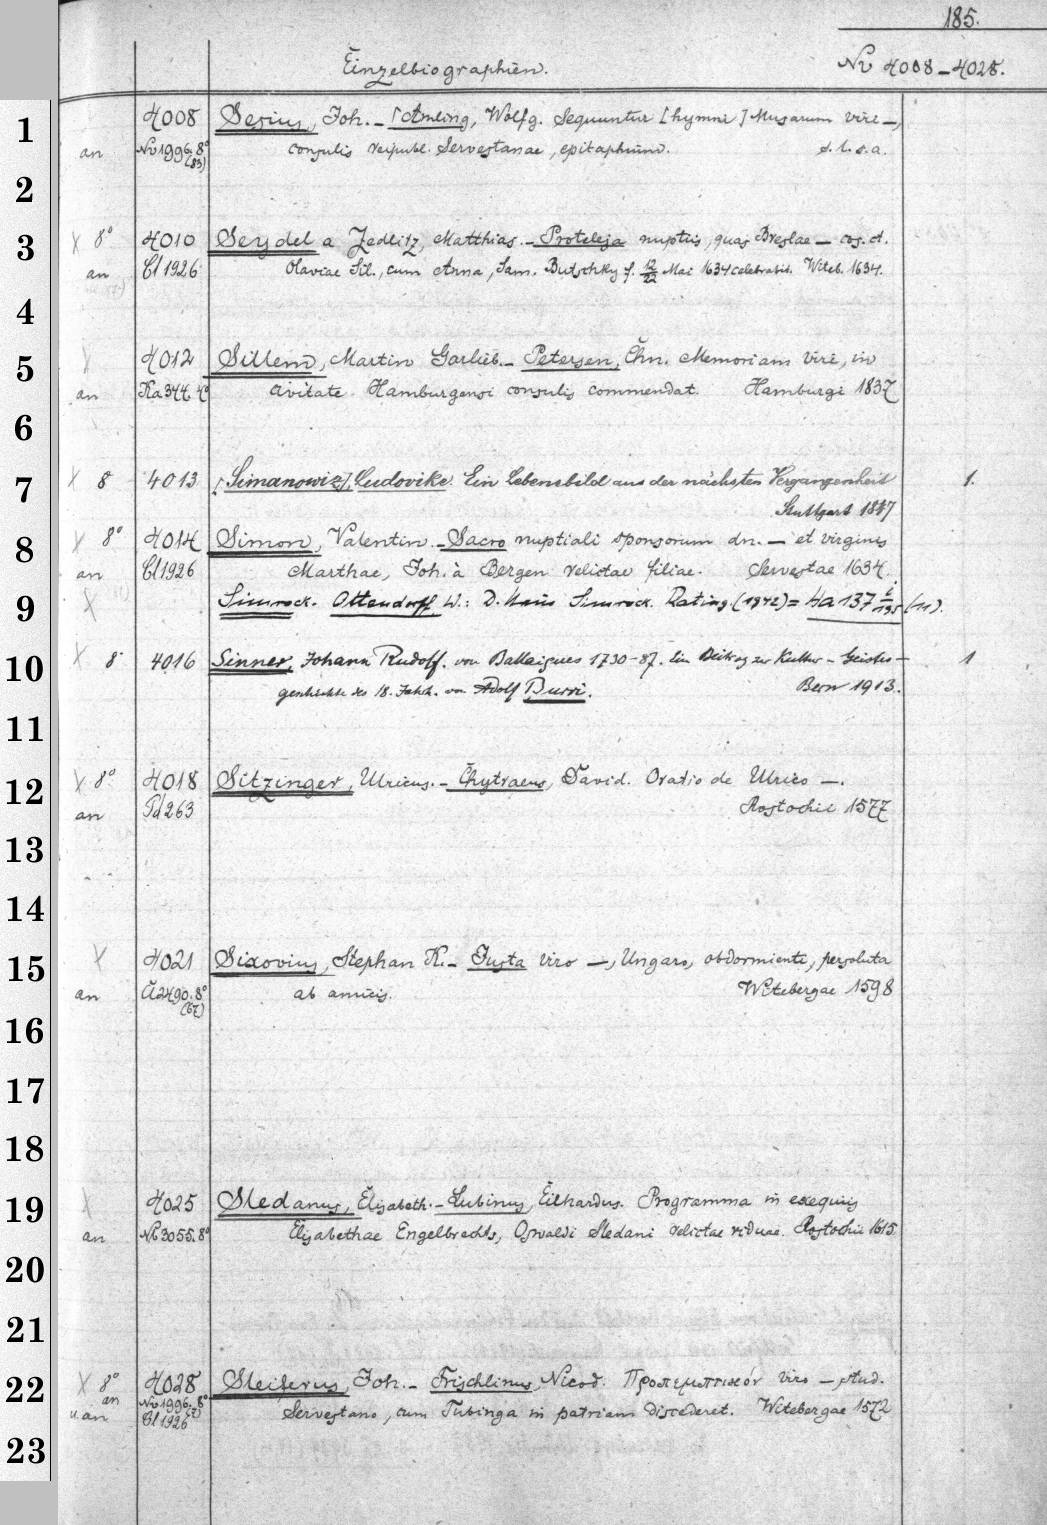 185.
Einzelbiographien. Nv 4008-4028.
1 4008 Sesius, Joh. - [Amling, Wolfg. Sequuntur [hymni] Musarum viri -,
an Nv 1996. 8° (83) consulis reipubl. Servestanae, epitaphium. s. l. s. a.
2
3 X 8° 4010 Seydel a Zedlitz, Matthias. - Proteleja nuptiis, quas Breslae - cos. d.
an Cl 1926 Olaviae Sil., cum Anna, Sam. Butschky f. 12/22 Mai 1634 celebravit. Witeb. 1634.
4
5 X 4012 Sillem, Martin Garlieb. - Petersen, Chn. Memoriam viri, in
an Ka 344. 4° civitate Hamburgensi consulis commendat. Hamburgi 1837
6
7 X 8 4013 [Simanowiz], Ludovike. Ein Lebensbild aus der nächsten Vergangenheit 1.
Stuttgart 1847
8 X 8° 4014 Simon, Valentin. - Sacro nuptiali sponsorum dn. - et virginis
an Cl 1926 Marthae, Joh. à Bergen relictae filiae. Servestae 1634.
9 X Simrock. Ottendorff W.: D. Haus Simrock. Rating. (1942) = Ha 137 (11).
10 X 8° 4016 Sinner, Johann Rudolf. von Ballaigues 1730-87. Ein Beitrag zur Kultur- Geistes- 1
geschichte des 18. Jahrh. von Adolf Burri. Bern 1913.
11
12 X 8° 4018 Sitzinger, Ulricus. - Chytraeus, David. Oratio de Ulrico -.
an Pd 263 Rostochii 1577
13
14
15 X 4021 Sixovius, Stephan K. - Justa viro -, Ungaro, obdormiente, persoluta
an Li 2490. 8° (67) ab amicis. Witebergae 1598
16
17
18
19 X 4025 Sledanus, Elisabeth. - Lubinus, Eilhardus. Programma in exequiis
an Nk 3055. 8° Elisabethae Engelbrechts, Oswaldi Sledani relictae viduae. Rostochii 1615.
20
21
22 X 8° 4028 Sleiferus, Joh. - Frischlinus, Nicod. Προπεμπτικόν viro - stud.
an u. an Nv 1996. 8° Cl 1926 Servestano, cum Tubinga in patriam discederet. Witebergae 1572
23